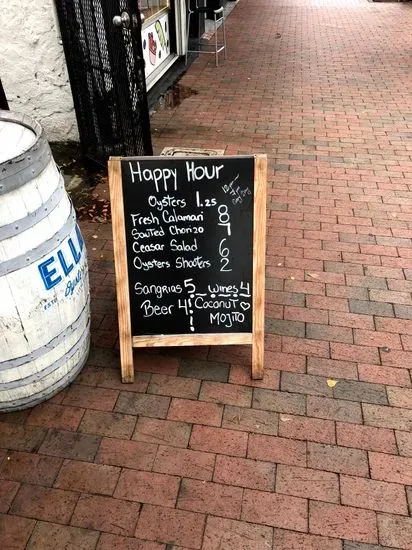 Happy Hour
Oysters 1.25
Fresh Calamari 8
Sauted Chorizo 7
Ceasar Salad 6
Oysters Shooters 2
Sangrias 5 Wines 4
Beer 4 Coconut
Mojito
ELL